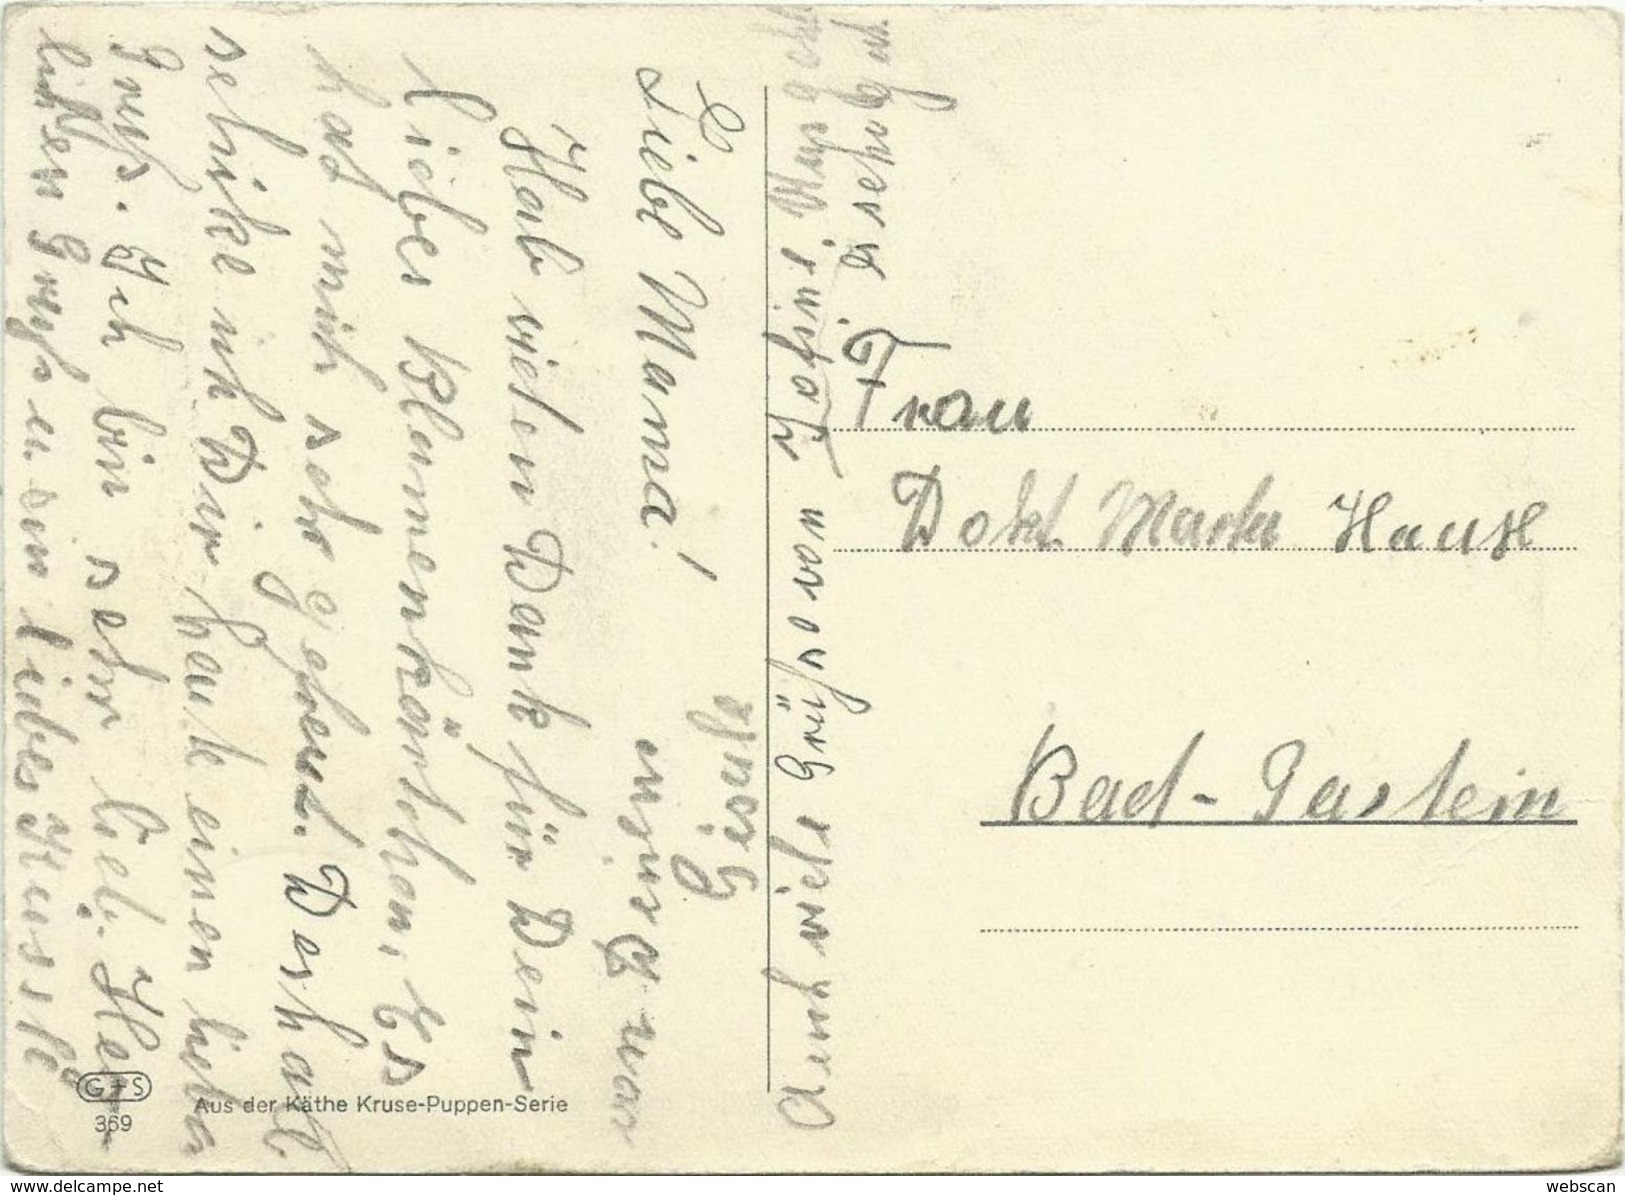 Liebe Mama!
Hab vielen Dank für Dein
liebes Blumenkärtchen. Es
hat mich sehr gefreut. Deshalb
schike ich Dir heute einen lieben
Gruß. Ich bin sehr lieb. Herz-
lichen Gruß u ein liebes Küssle
Auch viele Grüße von
geht
es sehr gut.
Frau
Dokt Marta Hausl
Bad-Gastein
G+S
369
Aus der Käthe Kruse-Puppen-Serie
www.delcampe.net
webscan